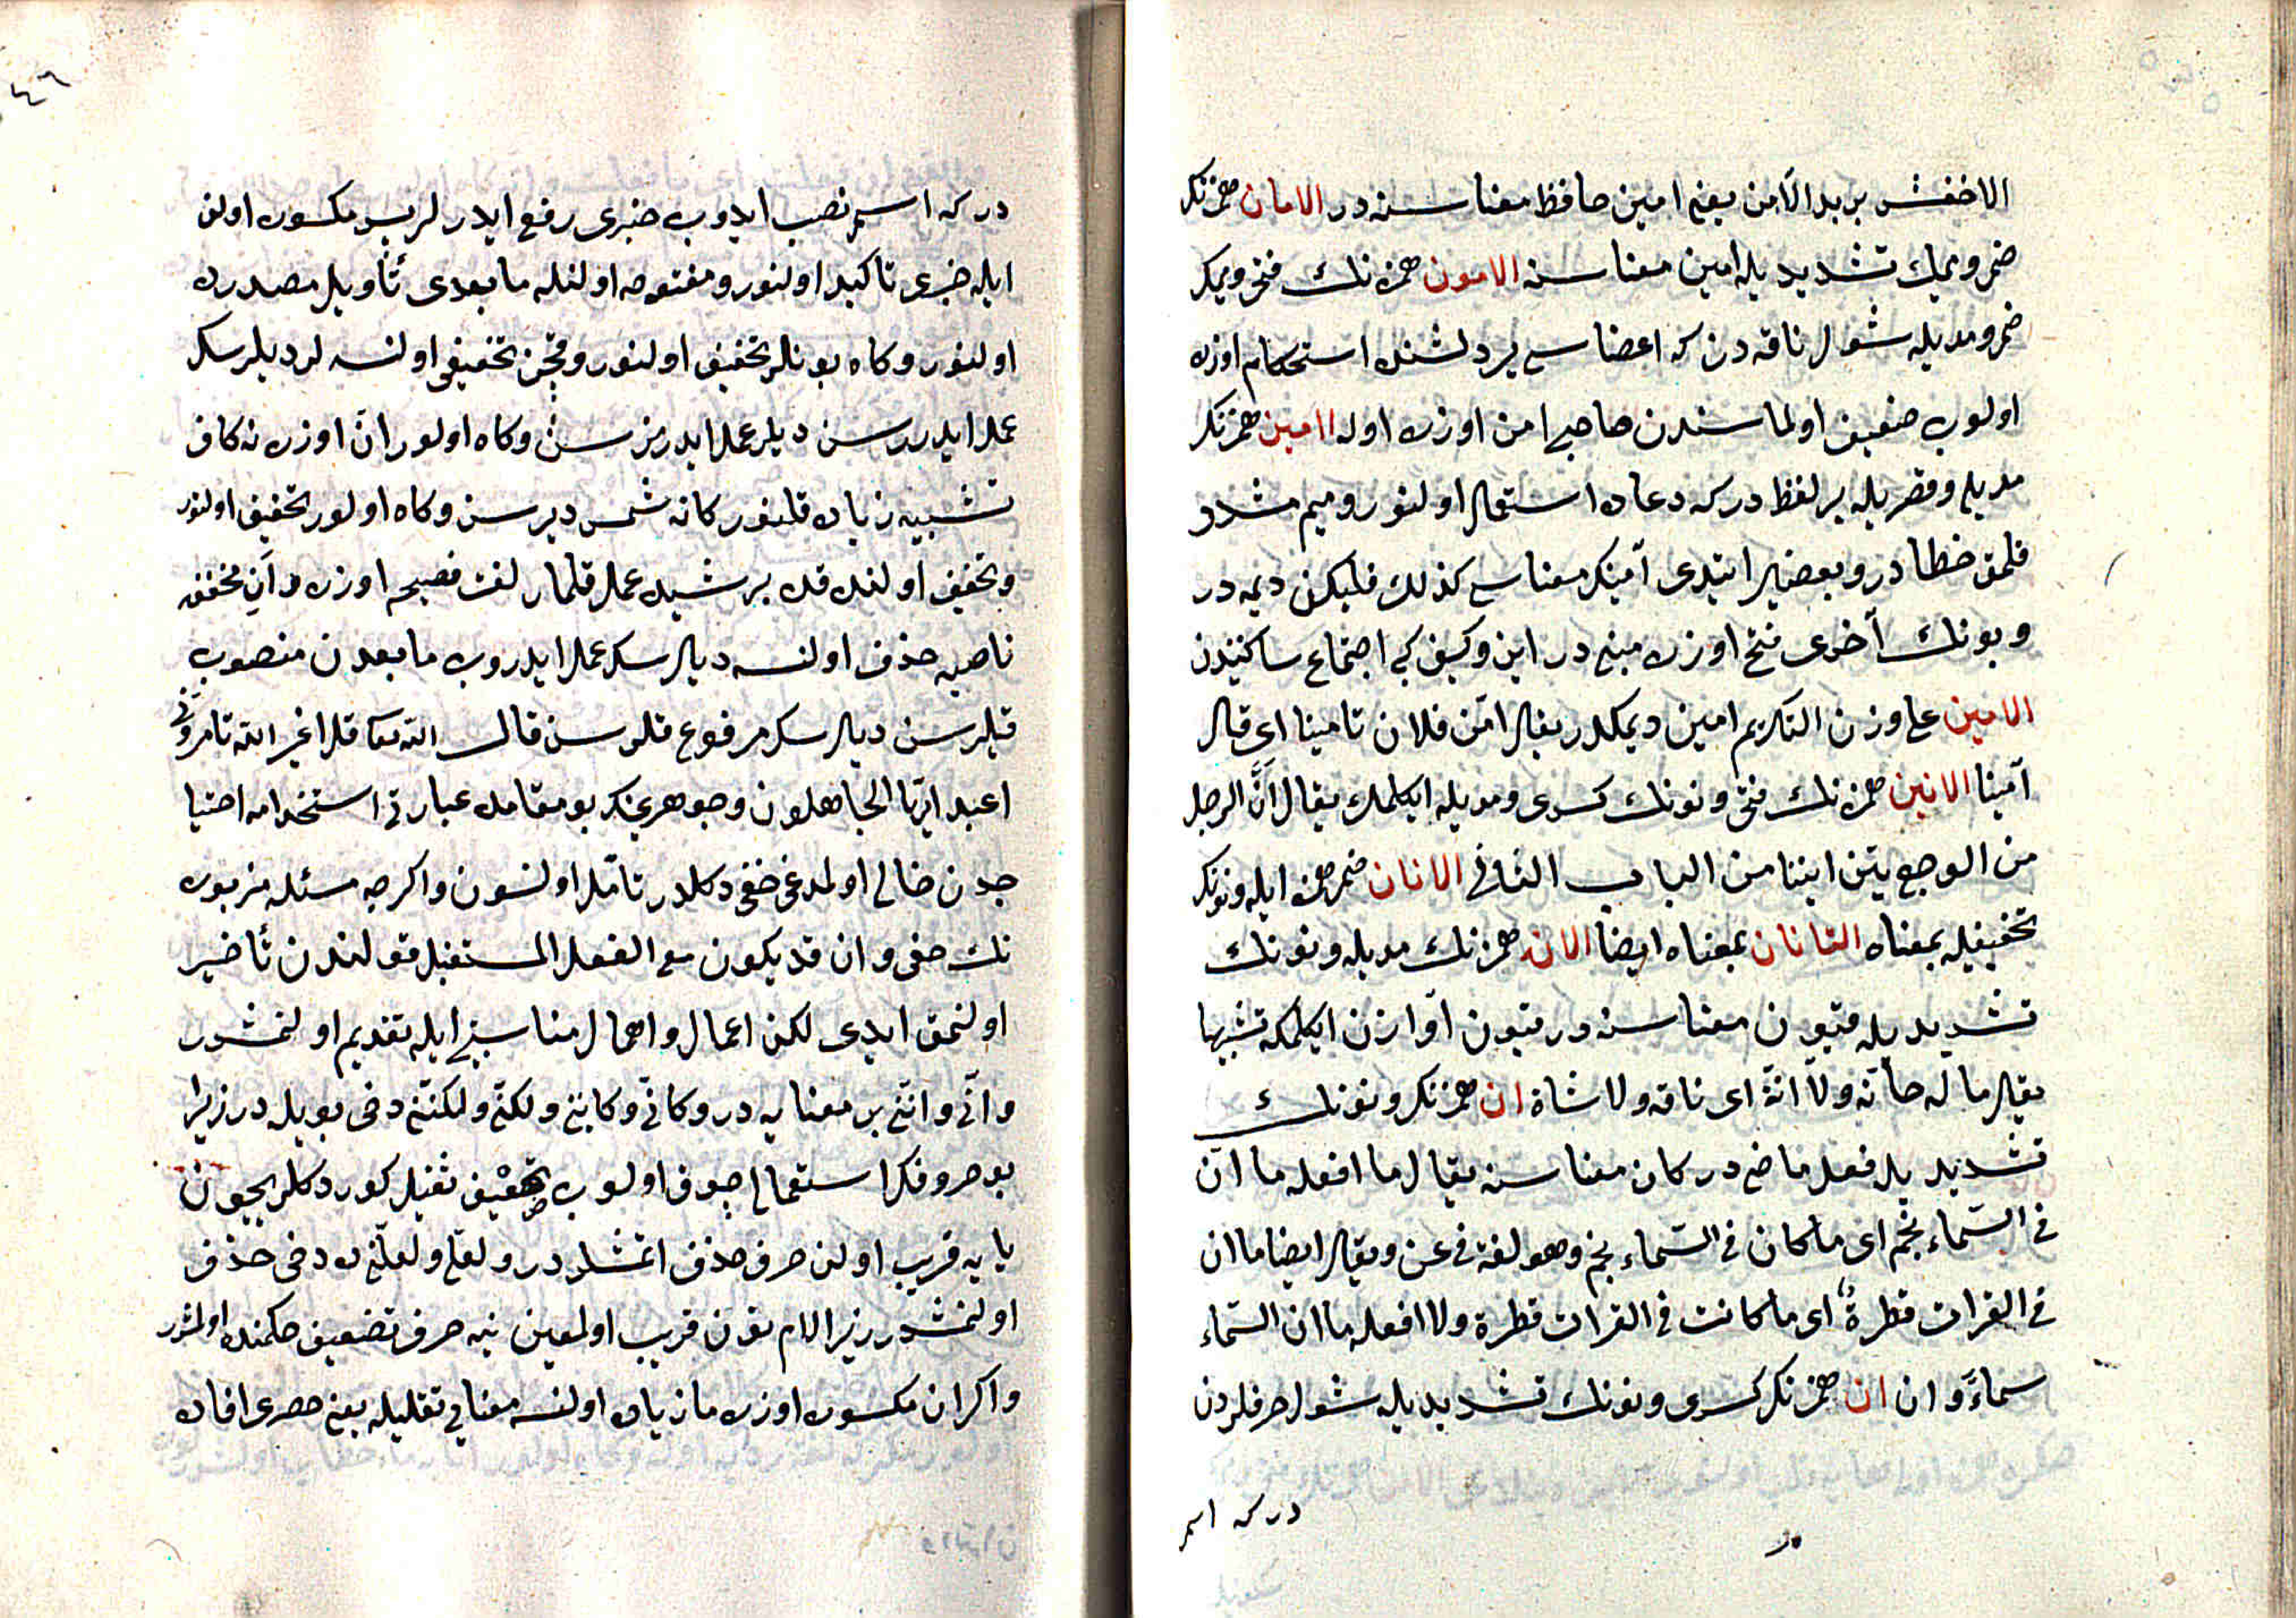 الاخفش يريد الآمن يعني امين حافظ معناسنه در الامان همزنك
ضمى وميمك تشديديله امين معناسنه الامون همزه نك فتحى وميمك
ضمى ومديله شول ناقه در كه اعضاسى يردلشنده استحكام اوزره
اولوب ضعيف اولماسندن صاحبى امن اوزره اوله اامين همزنك
مديله وقصريله بر لفظ در كه دعاده استعمال اولنور وميم مشدد
قلمق خطا در وبعضيلر ايتدى آمينك معناسى كذلك فليكن ديمه در
وبونك آخرى فتح اوزره مبنى در اين وكيف كبى اجتماع ساكنيندن
الامين على وزن التكريم امين ديمكدر يقال امّن فلان تامينا اى قال
آمينا الانين همزه نك فتحى ونونك كسرى ومديله ايكلمك يقال انّ الرجل
من الوجع يئن انينا من الباب الثانى الانان ضم همزه ايله ونونك
تخفيفيله بمعناه التانان بمعناه ايضا الانه همزه نك مديله ونونك
تشديديله قيون معناسنه در قيون آوازن ايكلمكه تشبيها
يقال ماله حانّه ولا آنّة اى ناقه ولا شاة ان همزنك ونونك
تشديديله فعل ماضى در كان معناسنه يقال ما افعله ما انّ
فى السّماء نجم اى ما كان فى السّماء نجم وهو لغة فى عن ويقال ايضا ما ان
فى الفرات قطرةٌ اى ما كانت فى الفرات قطرة ولا افعله ما ان السّماء
سماءً وان ان همزنك كسرى ونونك تشديديله شول حرفلردن
در كه اسم
٤٦
در كه اسمى نصب ايدوب خبرى رفع ايدرلر پس مكسوره اولن
ايله خبرى تاكيد اولنور ومفتوحه اولنله مابعدى تأويل مصدرده
اولنور وكاه بونلر تخفيف اولنور وقچن تخفيف اولنسه لر ديلرسك
عمل ايدررسن ديلر عمل ايدرمزسن وكاه اولور انّ اوزرنه كاف
تشبيه زياده قلنور كانه شمس ديرسن وكاه اولور تخفيف اولنور
وتخفيف اولندقده بر شيده عمل قلماز لغت فصيحه اوزره وان مخففه
ناصبه حذف اولنسه ديلرسك عمل ايدروب مابعدن منصوب
قيلرسن ديلرسك مرفوع قلرسن قال الله تعا قل افغير الله تامرونّى
اعبد ايها الجاهلون وجوهرينك بو مقامده عبارتى استخدامه احتيا
جدن خالى اولمدغى خفى دكلدر تامّل اولنسون واكرچه مسئله مزبوره
نك حقى وان قد يكون مع الفعل المستقبل قولندن تأخير
اولنمق ايدى لكن اعمال واهمال مناسبتى ايله تقديم اولنمشدر
وانّى وانّنى بر معنايه در وكانّى وكاننى ولكنّى ولكننى دخى بويله در زيرا
بو حروفك استعمالى چوق اولوب تضعيف ثقيل كوردكلريچون
يايه قريب اولن حرف حذف اتمشلردر ولعلّى ولعلّنى ده دخى حذف
اولنمشدر زيرا لام نونه قريب اولمغين ينه حرف تضعيف حكمنده اولمشدر
واكر ان مكسوره اوزره ما زياده اولنسه معناى تقليله يعنى حصرى افاده